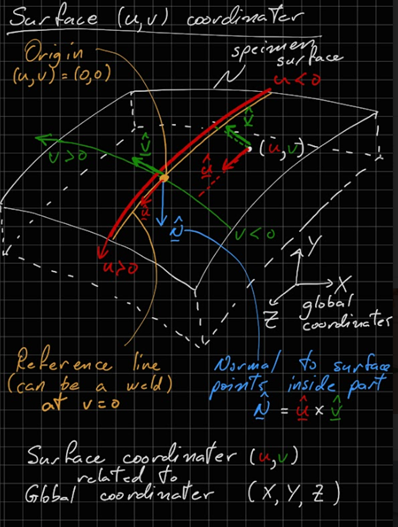 Surface (u,v) coordinates
Origin
(u,v) = (0,0)
specimen
surface
u<0
v̂
v>0
v̂
(u,v)
û
û
N̂
v<0
u>0
Y
X
Z
global
coordinates
Reference line
(can be a weld)
at v=0
Normal to surface
points inside part
N̂ = û × v̂
Surface coordinates (u,v)
related to
Global coordinates (X, Y, Z)